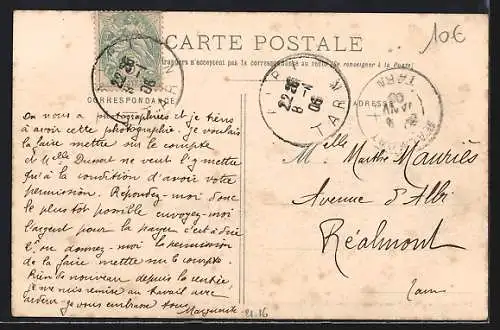 CARTE POSTALE
10€
étrangers n'acceptent pas la correspondance au recto (Se renseigner à la Poste)
CORRESPONDANCE
ADRESSE
22 35
8 -1
06
TARN
22 35
8 -1
06
TARN
TARN
On nous a photographiées et je tiens
à avoir cette photographie. Je voulais
la faire mettre sur le compte
et Melle Dumont ne veut l'y mettre
qu'à la condition d'avoir votre
permission. Répondez-moi donc
le plus tôt possible envoyez-moi
l'argent pour la payer c'est-à-dire
ou donnez-moi la permission
de la faire mettre sur le compte.
Rien de nouveau depuis la rentrée,
je me suis remise au travail avec
je vous embrasse tous
Marguerite
21.16
Melle Marthe Mauriès
Avenue d'Albi
Réalmont
Tarn